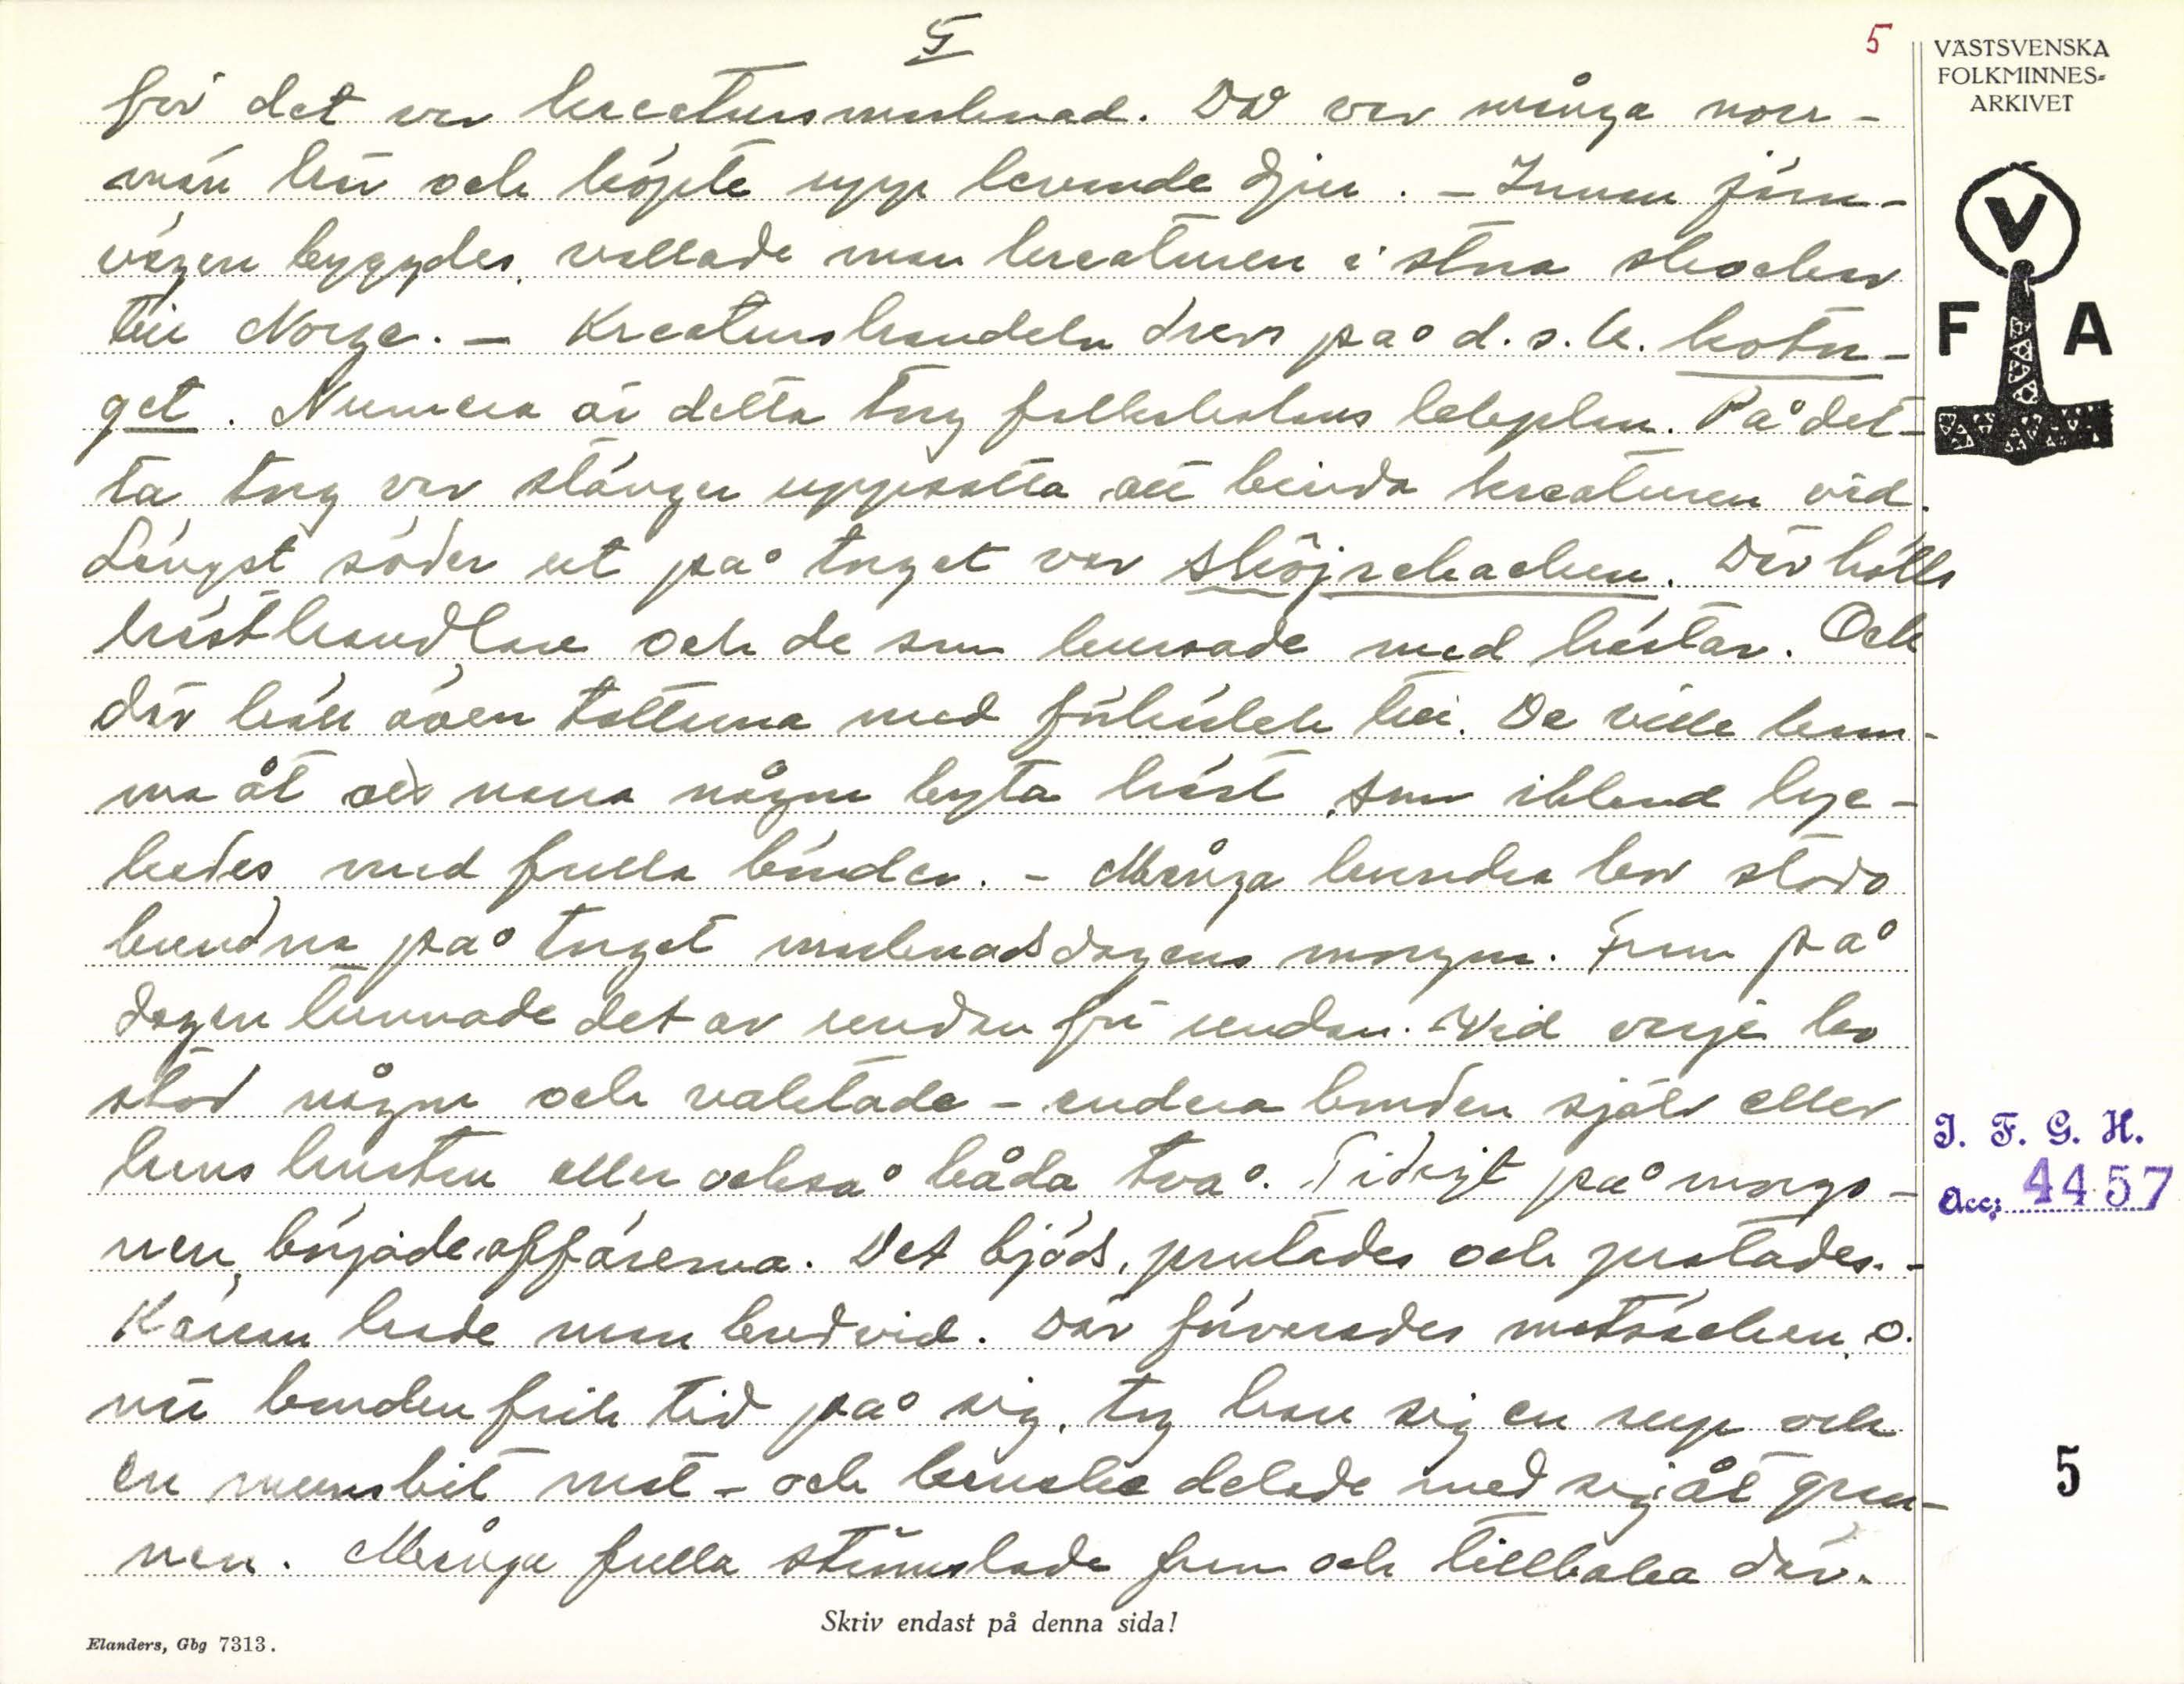 5
5
VÄSTSVENSKA
FOLKMINNES-
ARKIVET
för det var kreatursmarknad. Då var många norr-
män här och köpte upp levande djur. - Innan järn-
vägen byggdes, vallade man kreaturen i stora skockar
till Norge. - Kreaturshandeln drevs på d. s. k. kotor-
get. Numera är detta torg folkskolans lekplan. På det-
ta torg var stänger uppsatta att binda kreaturen vid.
Längst söder ut på torget var sköjrebacken. Där hölls
hästhandlare och de som kursade med hästar. Och
där höll även tattarna med förkärlek till. De ville kom-
ma åt att narra någon byta häst, som ibland lyc-
kades med fulla bönder. - Många hundra kor stodo
bundna på torget marknadsdagens morgon. Fram på
dagen tunnade det av undan för undan. Vid varje ko
stod någon och vaktade - endera bonden själv eller
hans hustru eller också båda två. Tidigt på morgo-
nen började affärerna. Det bjöds, prutades och pratades. -
Kärran hade man bredvid. Där förvarades matsäcken, o.
när bonden fick tid på sig, tog han sig en sup och
en munsbit mat - och kanske delade med sig åt gran-
nen. Många fulla stumlade fram och tillbaka där.
V
F A
I. F. G. H.
Acc: 4457
5
Skriv endast på denna sida!
Elanders, Gbg 7313.